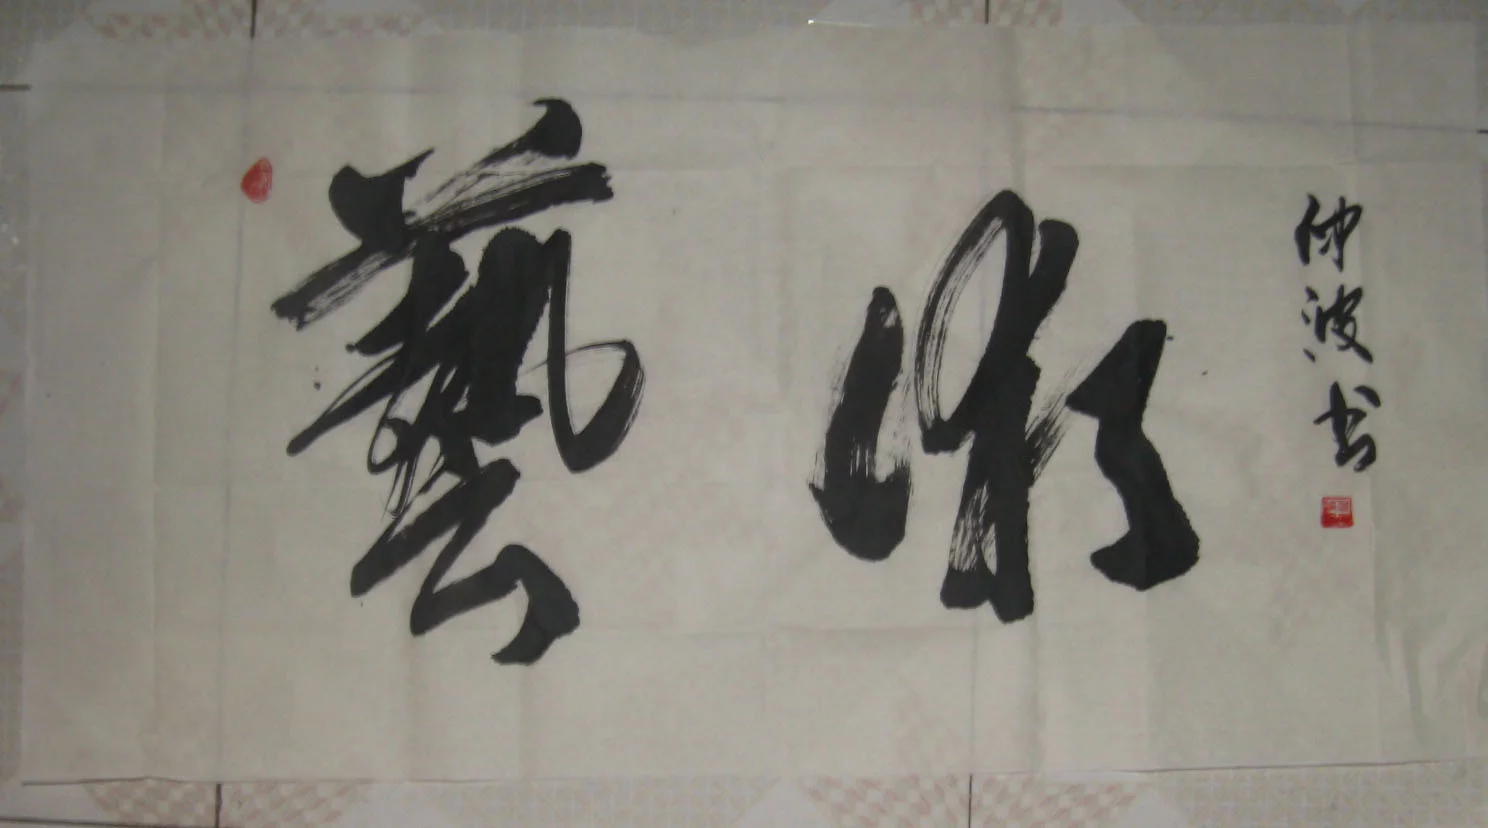 藝術
仲波书